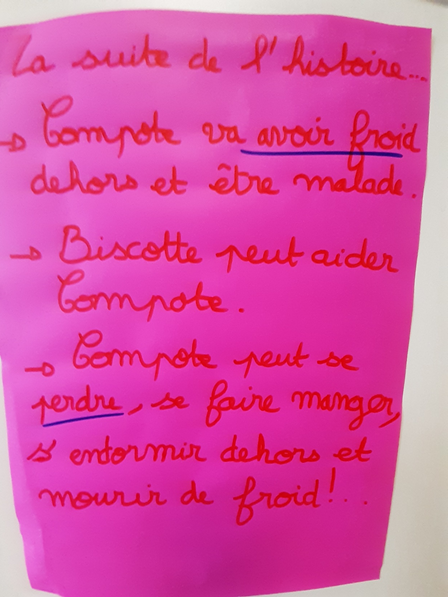 La suite de l'histoire...
→ Compote va avoir froid
dehors et être malade.
→ Biscotte peut aider
Compote.
→ Compote peut se
perdre, se faire manger,
s'entormir dehors et
mourir de froid!..